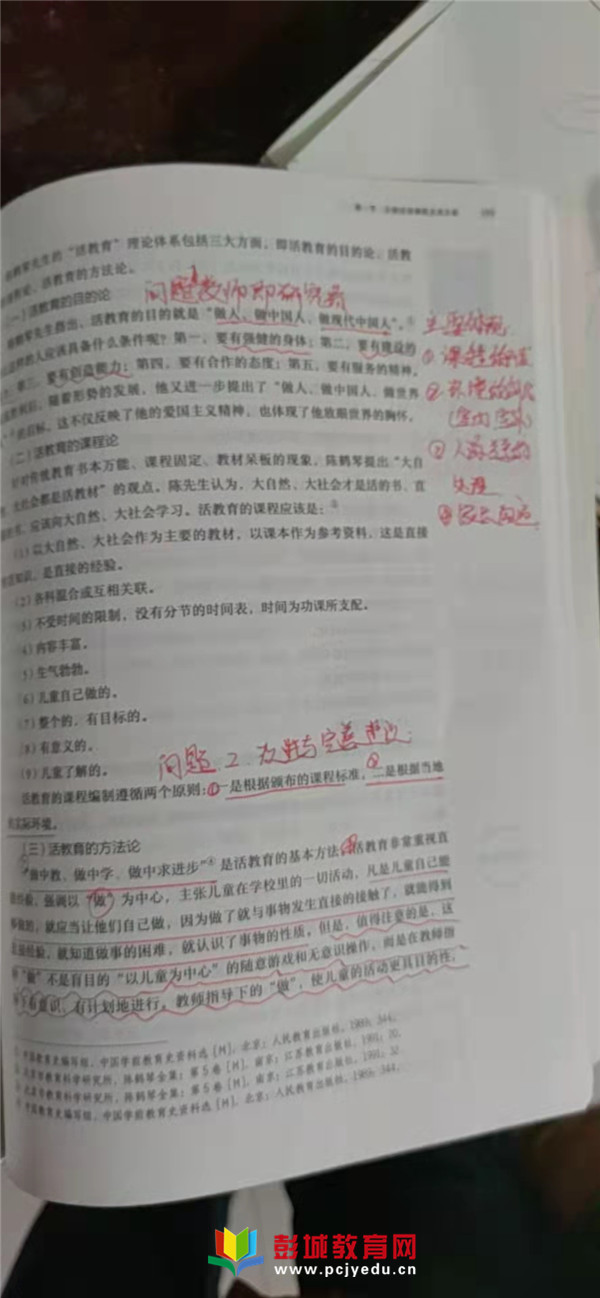 鹤琴先生的“活教育”理论体系包括三大方面，即活教育的目的论、活教
课程论、活教育的方法论。
问题1 教师即研究者
（一）活教育的目的论
鹤琴先生指出，活教育的目的就是“做人、做中国人、做现代中国人”。
的人应该具备什么条件呢？第一，要有强健的身体；第二，要有建设的
第三，要有创造能力；第四，要有合作的态度；第五，要有服务的精神。
随着形势的发展，他又进一步提出了“做人、做中国人、做世界
的目标，这不仅反映了他的爱国主义精神，也体现了他放眼世界的胸怀。
① 课程
②环境的
③ 人
④家长
（二）活教育的课程论
针对传统教育书本万能、课程固定、教材呆板的现象，陈鹤琴提出“大自
、大社会都是活教材”的观点。陈先生认为，大自然、大社会才是活的书、直
的书，应该向大自然、大社会学习。活教育的课程应该是：
（1）以大自然、大社会作为主要的教材，以课本作为参考资料，这是直接
知识，是直接的经验。
（2）各科混合或互相关联。
（3）不受时间的限制，没有分节的时间表，时间为功课所支配。
（4）内容丰富。
（5）生气勃勃。
（6）儿童自己做的。
（7）整个的，有目的。
（8）有意义的。
（9）儿童了解的。
问题 2
活教育的课程编制遵循两个原则：①一是根据颁布的课程标准，②二是根据当地
实际环境。
（三）活教育的方法论
“做中教、做中学、做中求进步”④是活教育的基本方法。活教育非常重视直
接经验，强调以“做”为中心，主张儿童在学校里的一切活动，凡是儿童自己能
够做的，就应当让他们自己做，因为做了就与事物发生直接的接触了，就能得到
直接经验，就知道做事的困难，就认识了事物的性质。但是，值得注意的是，这
种“做”不是盲目的“以儿童为中心”的随意游戏和无意识操作，而是在教师指
导下有意识、有计划地进行。教师指导下的“做”，使儿童的活动更具目的性、
中国教育史编写组．中国学前教育史资料选［M］．北京：人民教育出版社，1989：344.
北京市教育科学研究所．陈鹤琴全集：第5卷［M］．南京：江苏教育出版社，1991：
北京市教育科学研究所．陈鹤琴全集：第5卷［M］．南京：江苏教育出版社，1991：
中国教育史编写组．中国学前教育史资料选［M］．北京：人民教育出版社，1989：344.
彭城教育网
www.pcjyedu.cn